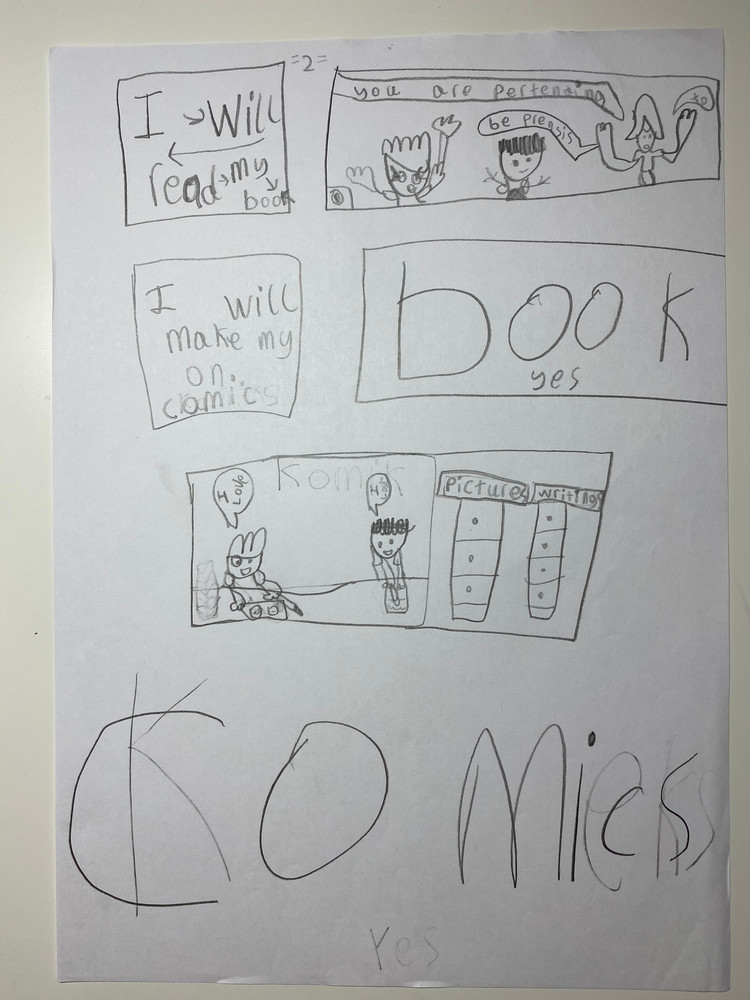 =2=
I Will
read my
book
you are pertending
be prensis
to
I will
make my
on.
comics
book
yes
Komik
I
Love
pictures
writings
Komicks
Yes